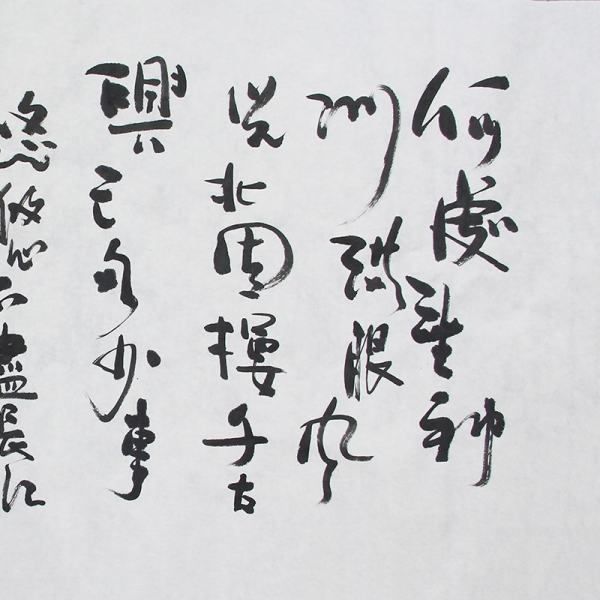 何處望神
州滿眼風
光北固樓千古
興亡多少事
悠悠不盡長江